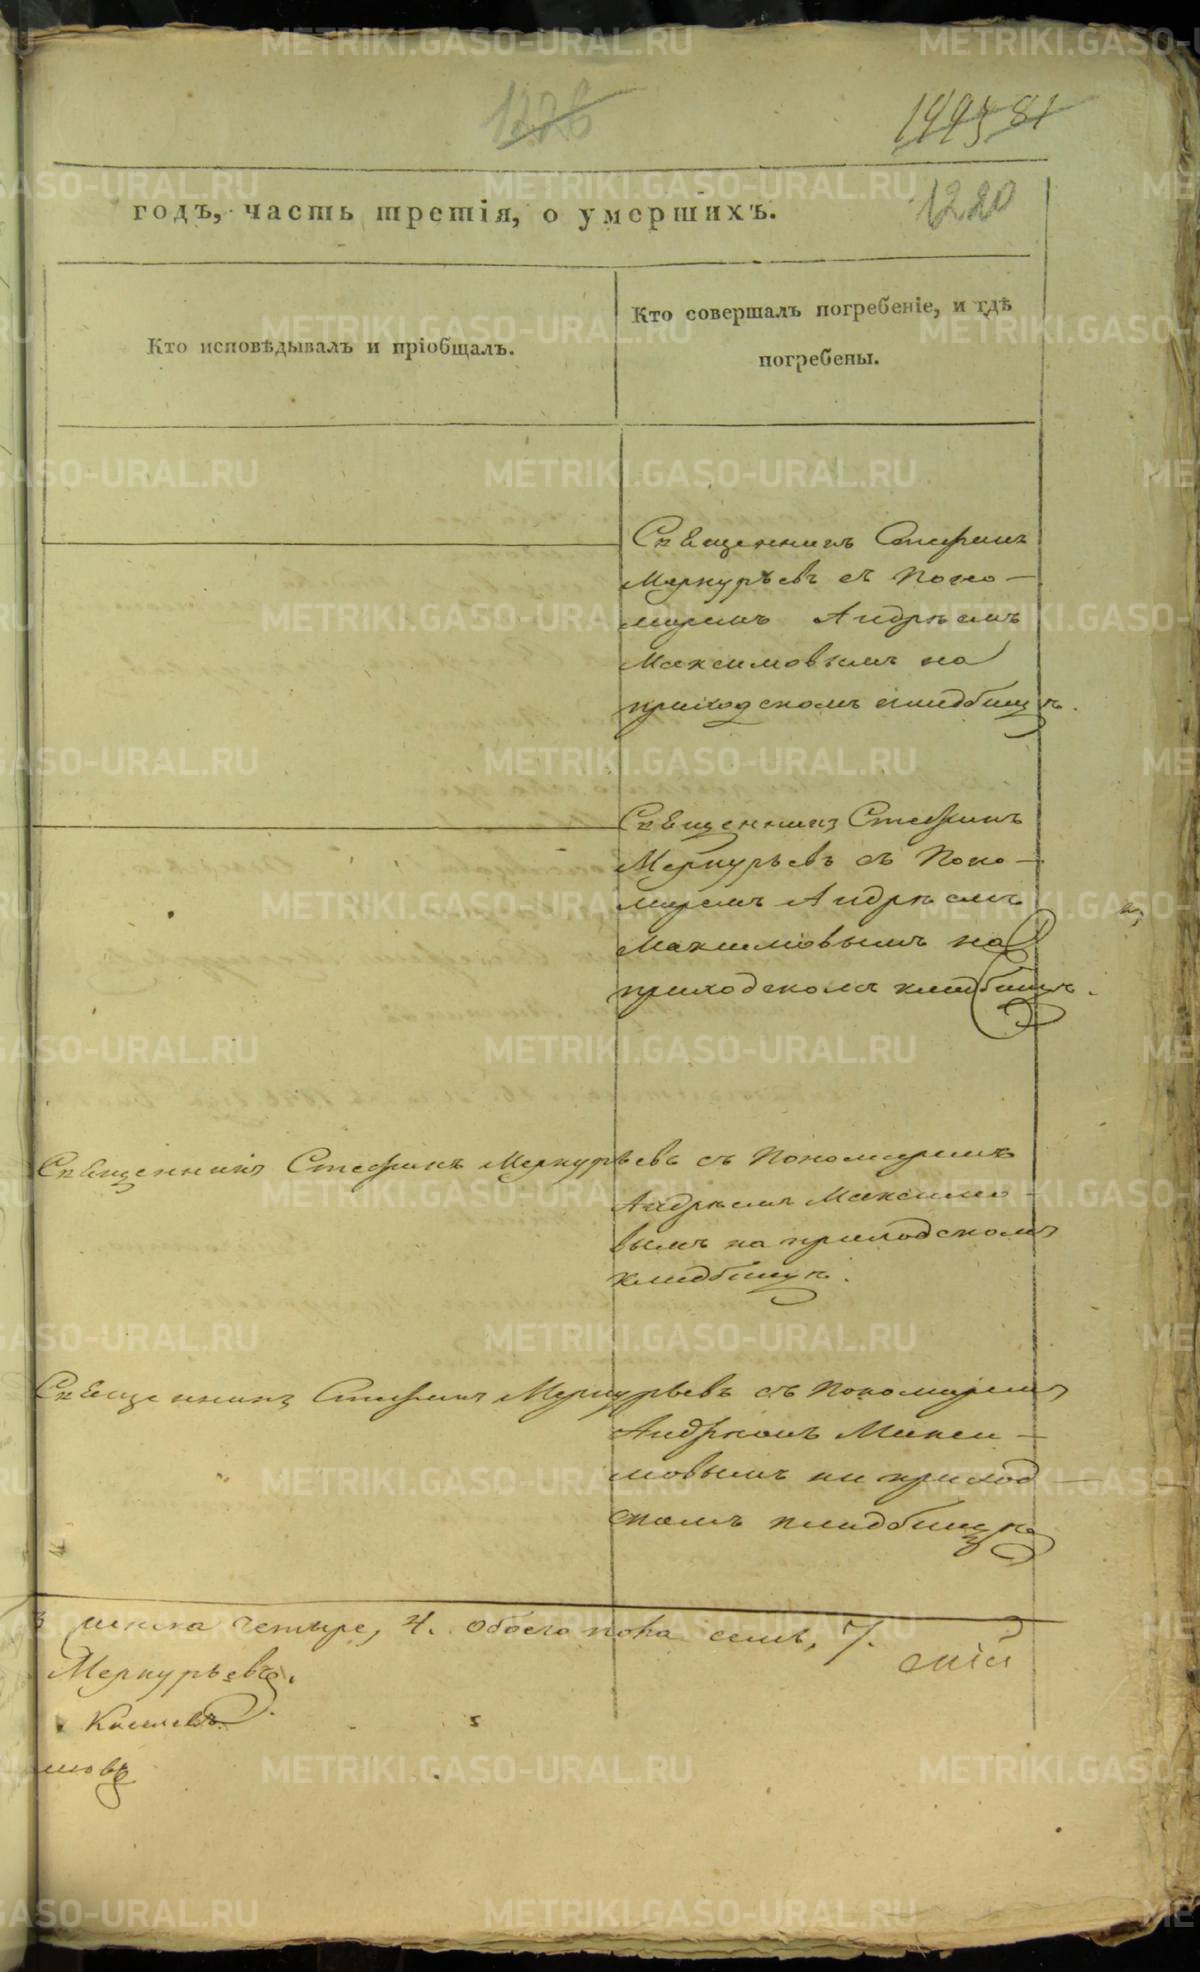 1226
1445 81
1220
годъ, часть третія, о умершихъ.
Кто исповѣдывалъ и пріобщалъ.
Кто совершалъ погребеніе, и гдѣ
погребены.
Священникъ Стефанъ
Меркурьевъ съ Поно-
маремъ Андрѣемъ
Максимовымъ на
приходскомъ кладбищѣ.
Священникъ Стефанъ
Меркурьевъ съ Поно-
маремъ Андрѣемъ
Максимовымъ на
приходскомъ кладбищѣ.
Священникъ Стефанъ Меркурьевъ съ Пономаремъ
Андрѣемъ Максимо-
вымъ на приходскомъ
кладбищѣ.
Священникъ Стефанъ Меркурьевъ съ Пономаремъ
Андрѣемъ Макси-
мовымъ на приход-
скомъ кладбищѣ
четыре, 4. обоего пола семь, 7.
Меркурьевъ.
мовъ
METRIKI.GASO-URAL.RU